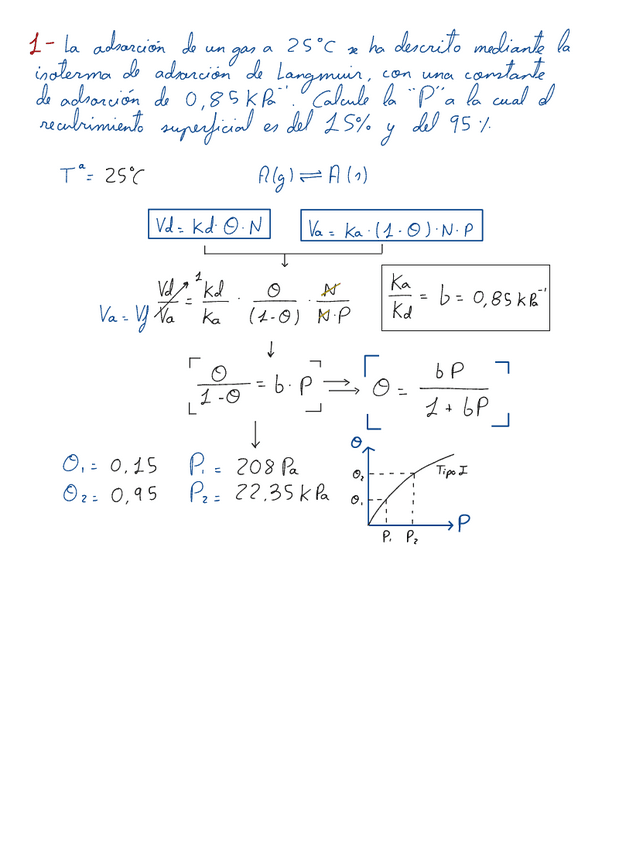 1- La adsorción de un gas a 25°C se ha descrito mediante la
isoterma de adsorción de Langmuir, con una constante
de adsorción de 0,85 kPa⁻¹. Calcule la "P" a la cual el
recubrimiento superficial es del 15% y del 95%.
Tª = 25°C A(g) ⇌ A(s)
Vd = Kd · Θ · N Va = Ka · (1 - Θ) · N · P
Va = Vd Vd/Va = 1 Kd/Ka · Θ/(1-Θ) · N/(N·P) Ka/Kd = b = 0,85 kPa⁻¹
[Θ/(1-Θ) = b · P] → [Θ = bP/(1 + bP)]
Θ₁ = 0,15 P₁ = 208 Pa
Θ₂ = 0,95 P₂ = 22,35 kPa
Θ
Θ₂ Tipo I
Θ₁
P₁ P₂ P